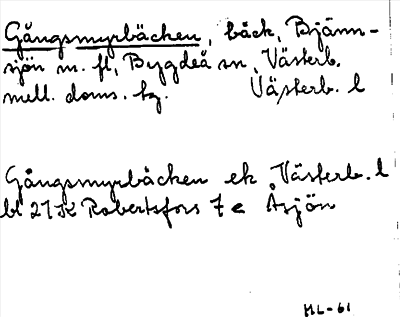 Gångsmyrbäcken, bäck, Bjänn-
sjön m. fl, Bygdeå sn, Västerb.
mell. doms. hg. Västerb. l
Gångsmyrbäcken ek Västerb. l
bl 21K Robertsfors 7e Åsjön
ML-61